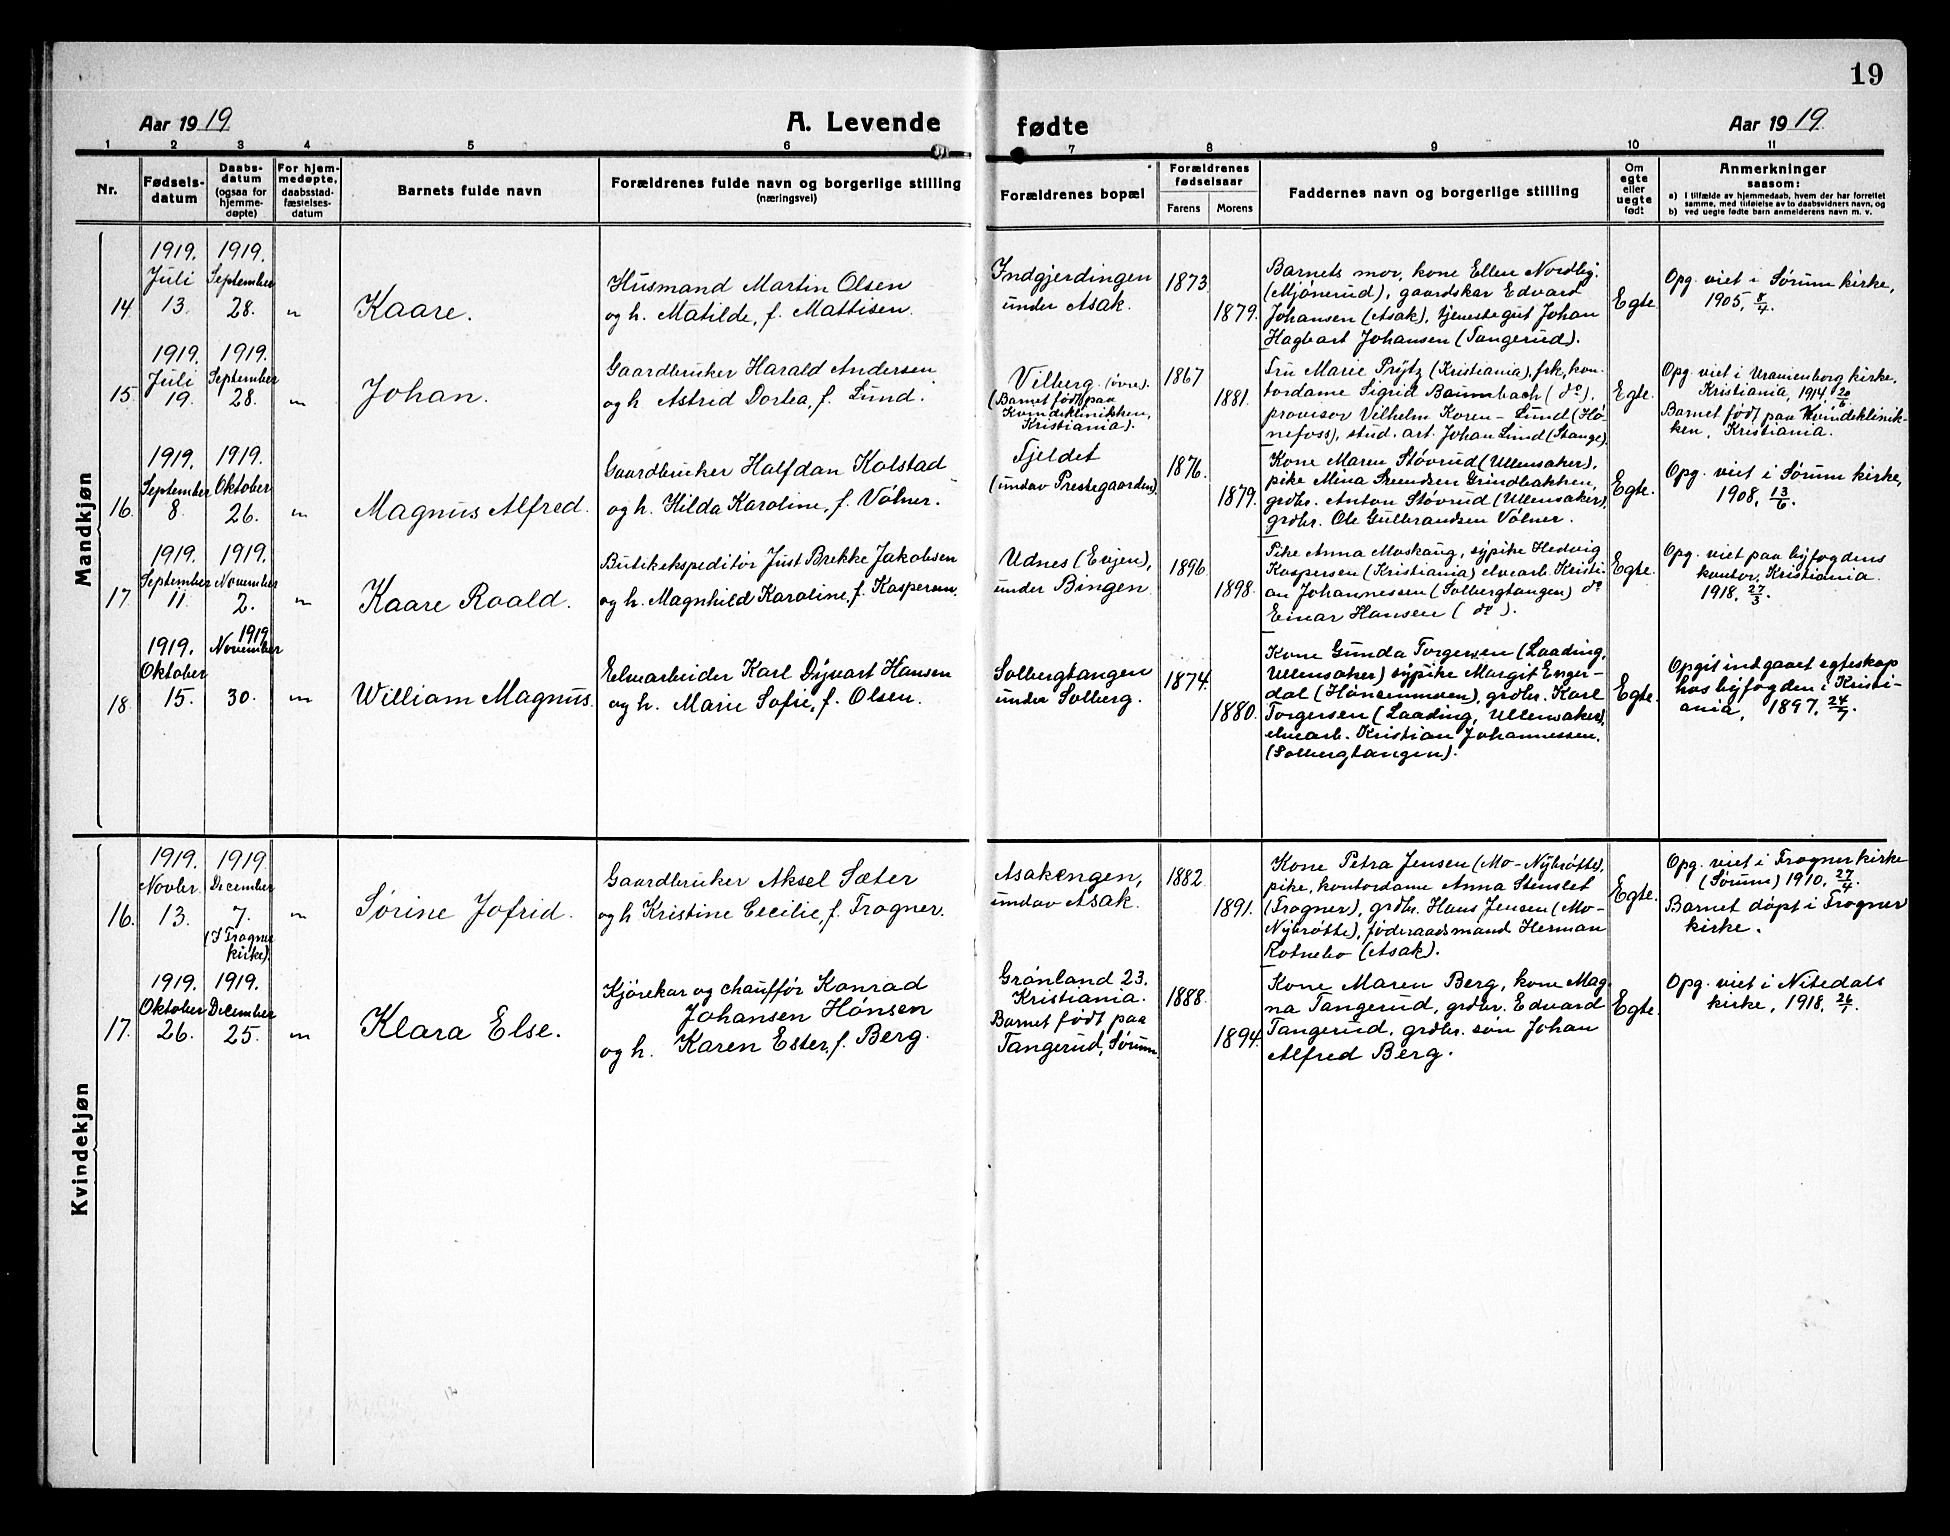 19
Aar 1919
A. Levende fødte
Aar 1919
1 2 3 4 5 6 7 8 9 10 11
Nr.
Fødsels-
datum
Daabs-
datum
(ogsaa for
hjemme-
døpte)
For hjem-
medøpte,
daabsstad-
fæstelses-
datum
Barnets fulde navn
Forældrenes fulde navn og borgerlige stilling
(næringsvei)
Forældrenes bopæl
Forældrenes
fødselsaar
Farens
Morens
Faddernes navn og borgerlige stilling
Om
egte
eller
uegte
født
Anmerkninger
saasom:
a) I tilfælde av hjemmedaab, hvem der har forrettet
samme, med tilføielse av to daabsvidners navn, og
b) ved uegte fødte barn anmelderens navn m. v.
Mandkjøn
14.
1919.
Juli
13.
1919.
September
28.
"
Kaare.
Husmand Martin Olsen
og h. Matilde, f. Mattisen.
Indgjerdingen
under Asak.
1873
1879.
Barnets mor, kone Ellen Nordby
(Mjønerud), gaardskar Edvard
Johansen (Asak), tjenestegut Johan
Hagbart Johansen (Tangerud).
Egte.
Opg. viet i Sørum kirke,
1905, 8/4.
15.
1919.
Juli
19.
1919.
September
28.
"
Johan.
Gaardbruker Harald Andersen
og h. Astrid Dortea, f. Lund.
Vilberg (øvre).
(Barnet født paa
Kvindeklinikken,
Kristiania).
1867
1881.
Fru Marie Prytz (Kristiania), frk, kon-
tordame Sigrid Baumbach (do),
provisor Vilhelm Koren-Lund (Hø-
nefoss), stud. art. Johan Lund (Stange).
Egte.
Opg. viet i Uranienborg kirke,
Kristiania, 1914, 20/6.
Barnet født paa Kvindeklinik-
ken, Kristiania.
16.
1919.
September
8.
1919.
Oktober
26.
"
Magnus Alfred.
Gaardbruker Halfdan Kolstad
og h. Hilda Karoline, f. Vølner.
Fjeldet
(under Prestegaarden).
1876.
1879.
Kone Maren Støvrud (Ullensaker),
pike Mina Svendsen Grindbakken,
grdbr. Anton Støvrud (Ullensaker),
grdbr. Ole Gulbrandsen Vølner.
Egte.
Opg. viet i Sørum kirke,
1908, 13/6.
17.
1919.
September
11.
1919.
November
2.
"
Kaare Roald.
Butikekspeditør Just Brekke Jakobsen
og h. Magnhild Karoline, f. Kaspersen.
Udnes (Evjen),
under Bingen.
1896.
1898.
Pike Anna Moskaug, sypike Hedvig
Kaspersen (Kristiania) elvearb. Kristi-
an Johannesen (Solbergtangen) do
Einar Hansen (do).
Egte.
Opg. viet paa byfogdens
kontor, Kristiania.
1918, 27/3.
18.
1919.
Oktober
15.
1919
November
30.
"
William Magnus.
Elvearbeider Karl Dyvart Hansen
og h. Marie Sofie, f. Olsen.
Solbergtangen
under Solberg.
1874.
1880.
Kone Gunda Torgersen (Laading,
Ullensaker) sypike Margit Enger-
dal (), grdbr. Karl
Torgersen (Laading, Ullensaker),
elvearb. Kristian Johannessen,
(Solbergtangen).
Egte.
Opgit indgaaet egteskap
hos byfogden i Kristi-
ania, 1897, 24/7.
Kvindekjøn
16.
1919.
Novbr.
13.
1919
December
7.
(I Frogner
kirke).
"
Sørine Jofrid.
Gaardbruker Aksel Sæter
og h Kristine Cecilie, f. Frogner.
Asakengen,
under Asak.
1882.
1891.
Kone Petra Jensen (Mo-Nybrøtte),
pike, kontordame Anna Stenslet
(Frogner), grdbr. Hans Jensen (Mo-
Nybrøtte), føderaadsmand Herman
Rotnebo (Asak).
Egte.
Opg. viet i Frogner kirke
(Sørum) 1910, 27/4.
Barnet døpt i Frogner
kirke.
17.
1919.
Oktober
26.
1919.
December
25.
"
Klara Else.
Kjørekar og chauffør Konrad
Johansen Hønsen
og h. Karen Ester, f. Berg.
Grønland 23.
Kristiania.
Barnet født paa
Tangerud, Sørum
1888.
1894.
Kone Maren Berg, kone Mag-
na Tangerud, grdbr. Edvard
Tangerud, grdbr. søn Johan
Alfred Berg.
Egte.
Opg. viet i Nitedals
kirke, 1918, 26/7.